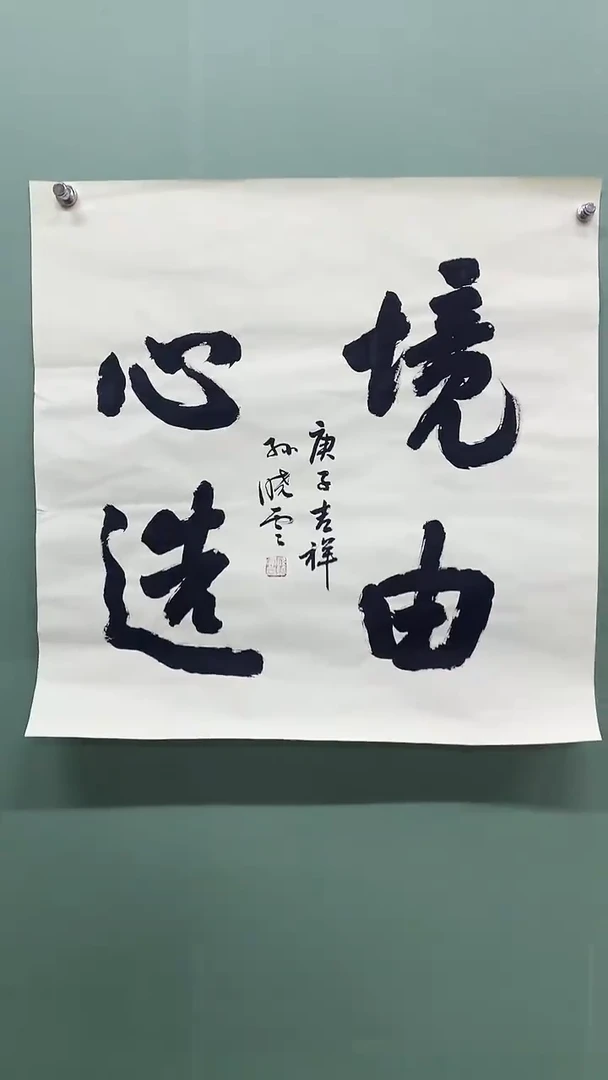 境由
心造
庚子吉祥
孙晓云